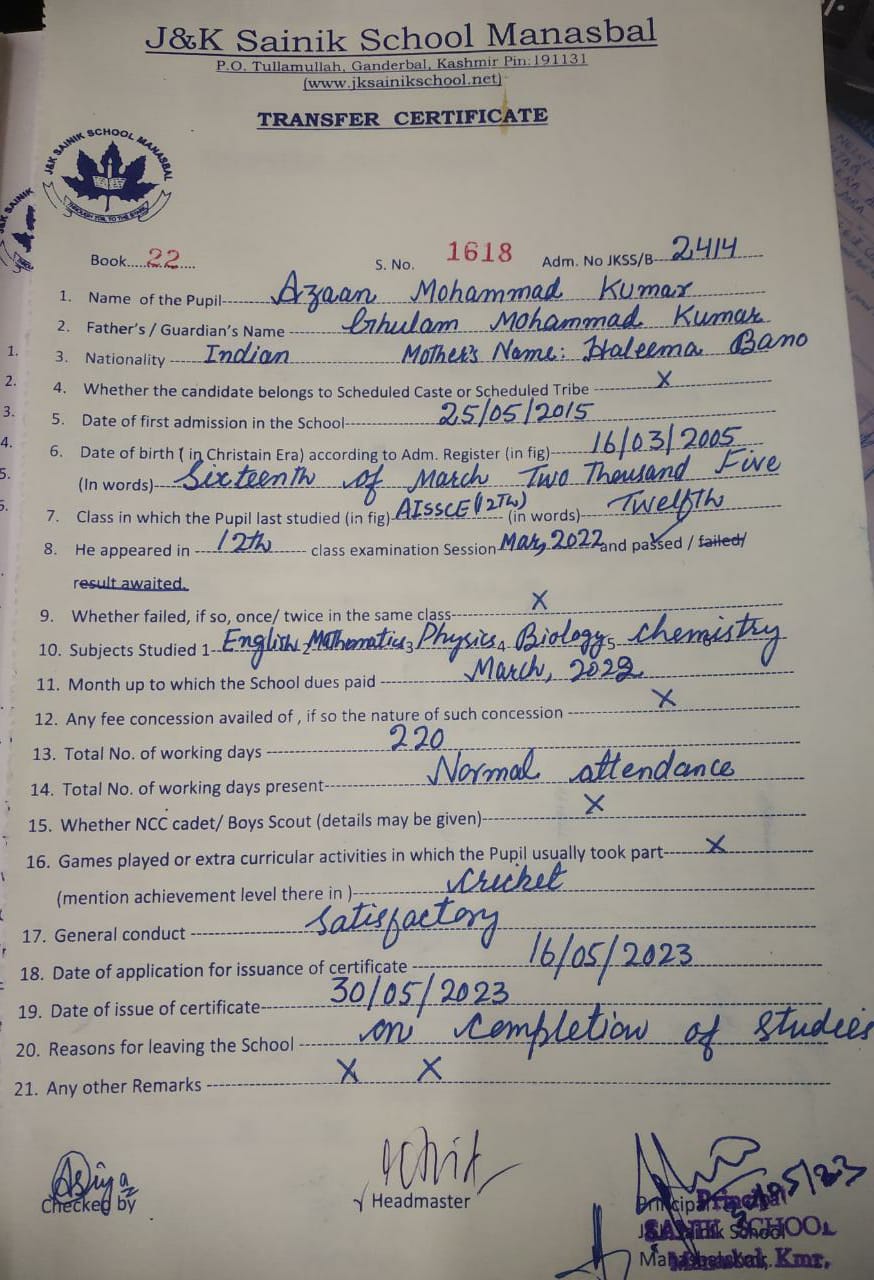 J&K Sainik School Manasbal
P.O. Tullamullah, Ganderbal, Kashmir Pin:191131
(www.jksainikschool.net)
TRANSFER CERTIFICATE
J&K SAINIK SCHOOL MANASBAL
Book.....22.... S. No. 1618 Adm. No JKSS/B--2414
1. Name of the Pupil Azaan Mohammad Kumar
2. Father's / Guardian's Name Ghulam Mohammad Kumar
3. Nationality Indian Mother's Name: Haleema Bano
4. Whether the candidate belongs to Scheduled Caste or Scheduled Tribe X
5. Date of first admission in the School 25/05/2015
6. Date of birth ( in Christain Era) according to Adm. Register (in fig) 16/03/2005
(In words) Sixteenth of March Two Thousand Five
7. Class in which the Pupil last studied (in fig) AISSCE (12Th) (in words) Twelfth
8. He appeared in 12th class examination Session Mar, 2022 and passed / failed/
result awaited.
9. Whether failed, if so, once/ twice in the same class X
10. Subjects Studied 1 English 2 Mathematics 3 Physics 4 Biology 5 Chemistry
11. Month up to which the School dues paid March, 2022
12. Any fee concession availed of , if so the nature of such concession X
13. Total No. of working days 220
14. Total No. of working days present Normal attendance
15. Whether NCC cadet/ Boys Scout (details may be given) X
16. Games played or extra curricular activities in which the Pupil usually took part X
(mention achievement level there in ) Cricket
17. General conduct Satisfactory
18. Date of application for issuance of certificate 16/05/2023
19. Date of issue of certificate 30/05/2023
20. Reasons for leaving the School on completion of studies
21. Any other Remarks X X
Asiya
Checked by Headmaster Principal
Principal
J&K Sainik School
SAINIK SCHOOL
Manasbal, Kmr.